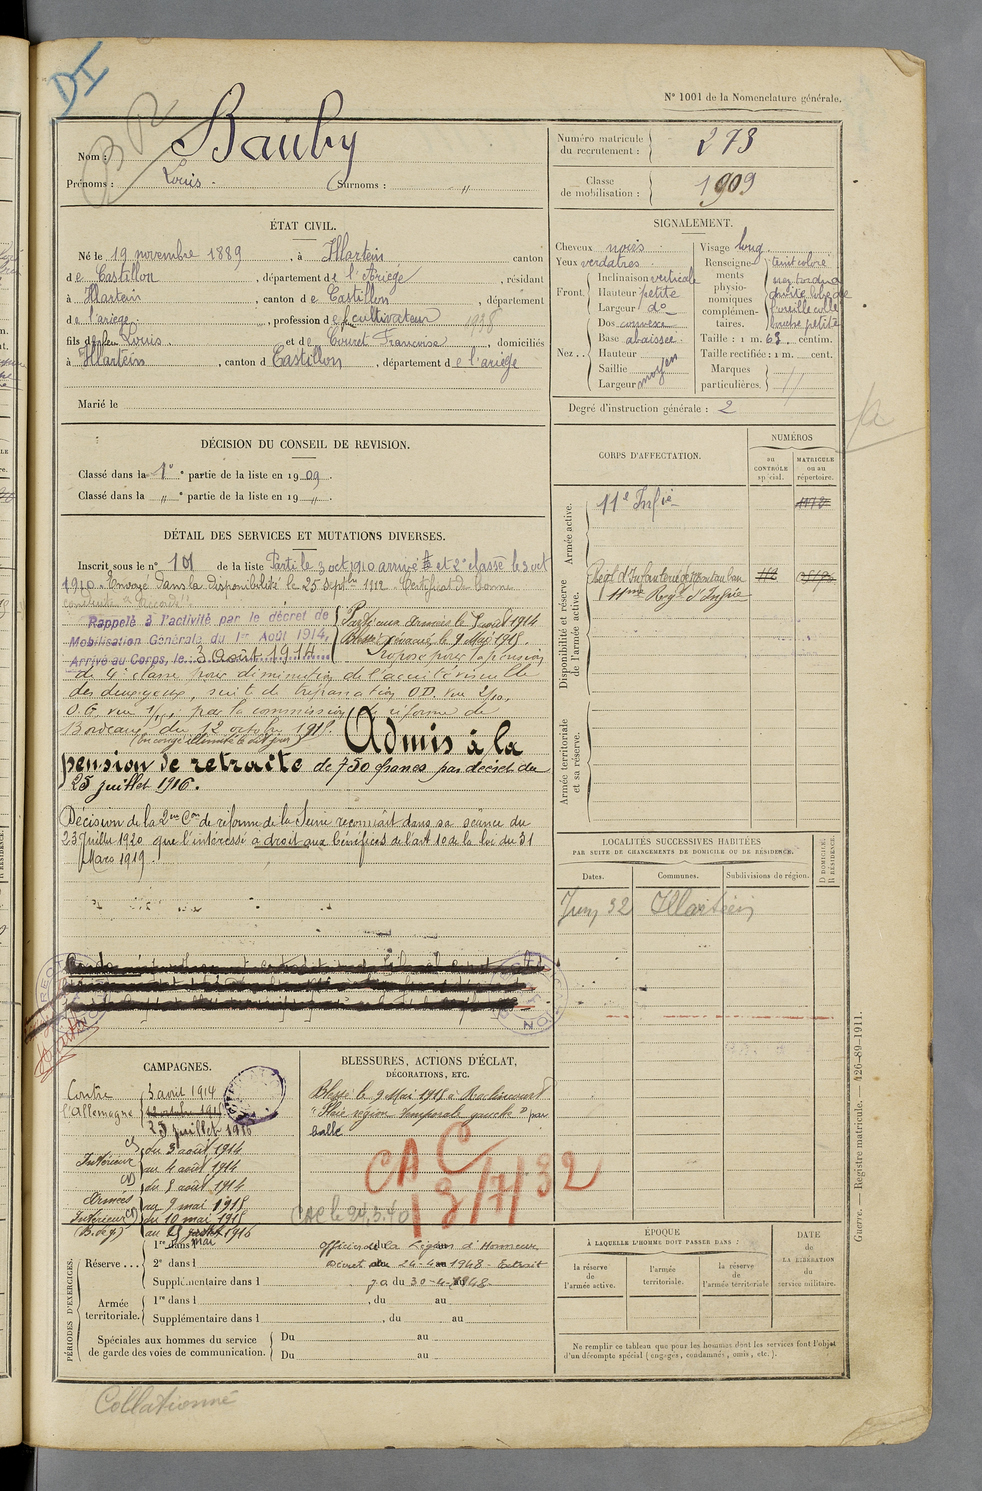 DI
BR
N° 1001 de la Nomenclature générale.
Nom : Bauby
Prénoms : Louis. Surnoms : "
Numéro matricule du recrutement : 273
Classe de mobilisation : 1909
ÉTAT CIVIL.
Né le 19 novembre 1889, à Illartein canton
de Castillon, département de l'Ariège, résidant
à Illartein, canton de Castillon, département
de l'ariège, profession de cultivateur 1938
fils de feu Louis. et de Touret Françoise, domiciliés
à Illartein, canton d Castillon, département de l'ariège
Marié le
SIGNALEMENT.
Cheveux noirs
Yeux verdatres
Front.
Inclinaison verticale
Hauteur petite
Largeur d°
Nez..
Dos convexe
Base abaissée
Hauteur
Saillie
Largeur
moyen
Visage long
Renseignements physionomiques complémentaires.
teint coloré
nez tordu a
droite lobe de
l'oreille collé
bouche petite
Taille : 1 m. 63 centim.
Taille rectifiée : 1 m. cent.
Marques particulières. "
Degré d'instruction générale : 2
DÉCISION DU CONSEIL DE REVISION.
Classé dans la 1e partie de la liste en 1909.
Classé dans la " e partie de la liste en 19 ".
DÉTAIL DES SERVICES ET MUTATIONS DIVERSES.
Inscrit sous le n° 101 de la liste Parti le 3 oct 1910 arrivé et 2e classe le 3 oct
1910. Envoyé dans la disponibilité le 25 septbre 1912 Certificat de bonne
conduite "Accordé"
Rappelé à l'activité par le décret de
Mobilisation Générale du 1er Août 1914.
Arrivé au Corps, le 3 Août 1914
Parti aux Armées le 5 août 1914
Blessé évacué le 9 Mai 1915
Proposé pour la pension
de 4e classe pour diminution de l'acuité visuelle
des deux yeux, suite de trépanation O.D. vue 2/10,
O.G. vue 1/10, par la commission de réforme de
Bordeaux du 12 octobre 1915.
Admis à la
pension de retraite de 750 francs par décret du
25 juillet 1916.
Décision de la 2me Con de réforme de la Seine reconnait dans sa séance du
23 Juillet 1920 que l'intéressé a droit aux bénéfices de l'art 10 de la loi du 31
Mars 1919.
CORPS D'AFFECTATION.
NUMÉROS
au CONTRÔLE spécial.
MATRICULE ou au répertoire.
Armée active.
11e Infie
Disponibilité et réserve de l'armée active.
Regt d'Infanterie de Montauban
11me Regt d'Infie
Armée territoriale et sa réserve.
LOCALITÉS SUCCESSIVES HABITÉES
PAR SUITE DE CHANGEMENTS DE DOMICILE OU DE RÉSIDENCE.
Dates. Communes. Subdivisions de région.
D DOMICILE. R RÉSIDENCE.
Juin 32 Illartein
CAMPAGNES.
Contre l'Allemagne
3 août 1914
25 juillet 1916
Intérieur du 3 août 1914
au 4 août 1914
Armées du 5 août 1914
au 9 mai 1915
Intérieur du 10 mai 1915
(B. de g.) au 25 mai 1916
BLESSURES, ACTIONS D'ÉCLAT,
DÉCORATIONS, ETC.
Blessé le 9 Mai 1915 à Roclincourt
"Plaie région temporale gauche" par
balle
CAC
13/7/32
CAC le 24.3.40
Officier de la Légion d'Honneur
Décret du 24-4-1948. Extrait
J.O. du 30-4-1948.
PÉRIODES D'EXERCICES.
Réserve...
1re dans l
2e dans l
Supplémentaire dans l
Armée territoriale.
1re dans l , du au
Supplémentaire dans l , du au
Spéciales aux hommes du service
de garde des voies de communication.
Du au
Du au
ÉPOQUE
À LAQUELLE L'HOMME DOIT PASSER DANS :
la réserve de l'armée active.
l'armée territoriale.
la réserve de l'armée territoriale
DATE de LA LIBÉRATION du service militaire.
Ne remplir ce tableau que pour les hommes dont les services font l'objet
d'un décompte spécial (engagés, condamnés, omis, etc.).
Guerre. — Registre matricule. — 426-89-1911.
Collationné